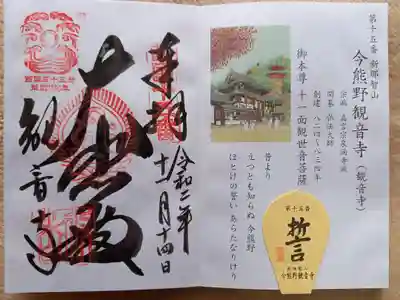 第十五番 新那智山
今熊野観音寺(観音寺)
宗派 真言宗泉涌寺派
開基 弘法大師
創建 八二四〜八三四年
御本尊 十一面観世音菩薩
昔より
立つとも知らぬ 今熊野
ほとけの誓い あらたなりけり
第十五番
誓
今熊野観音寺
奉拝
令和二年
十一月十四日
大悲殿
観音寺
西国三十三所